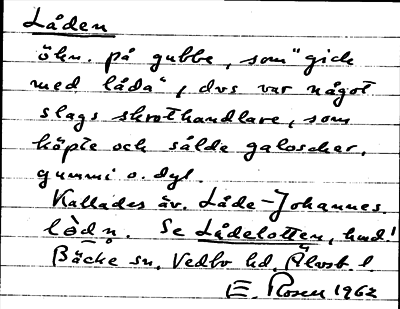 Låden
ökn. på gubbe, som "gick
med låda", dvs var något
slags skrothandlare, som
köpte och sålde galoscher,
gummi o. dyl.
Kallades äv. Låde-Johannes.
lò̲dn̥. Se Lådelotten, hmd!
Bäcke sn. Vedbo hd. Älvsb. l.
E. Rosen 1962